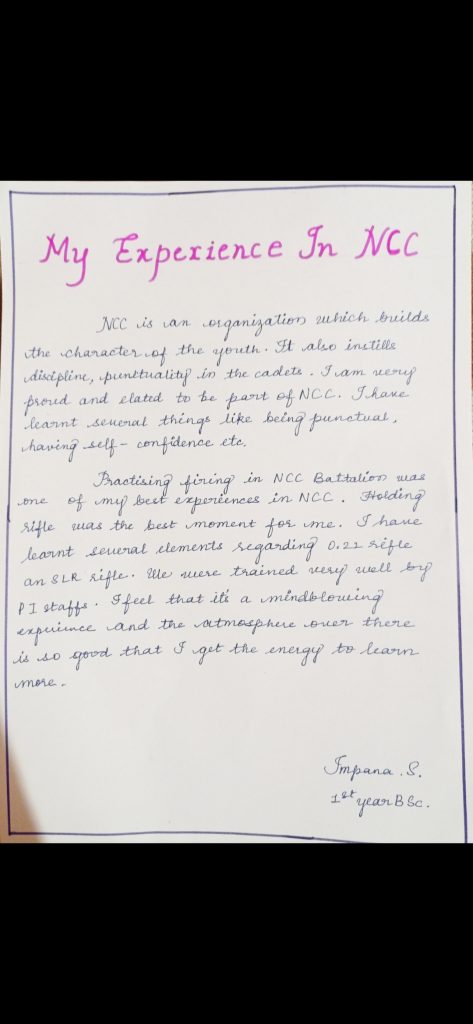 My Experience In NCC
NCC is an organization which builds
the character of the youth. It also instills
discipline, punctuality in the cadets. I am very
proud and elated to be part of NCC. I have
learnt several things like being punctual,
having self-confidence etc.
Practising firing in NCC Battalion was
one of my best experiences in NCC. Holding
rifle was the best moment for me. I have
learnt several elements regarding 0.22 rifle
an SLR rifle. We were trained very well by
PI staffs. I feel that it's a mindblowing
experience and the atmosphere over there
is so good that I get the energy to learn
more.
Impana.S.
1st year BSc.